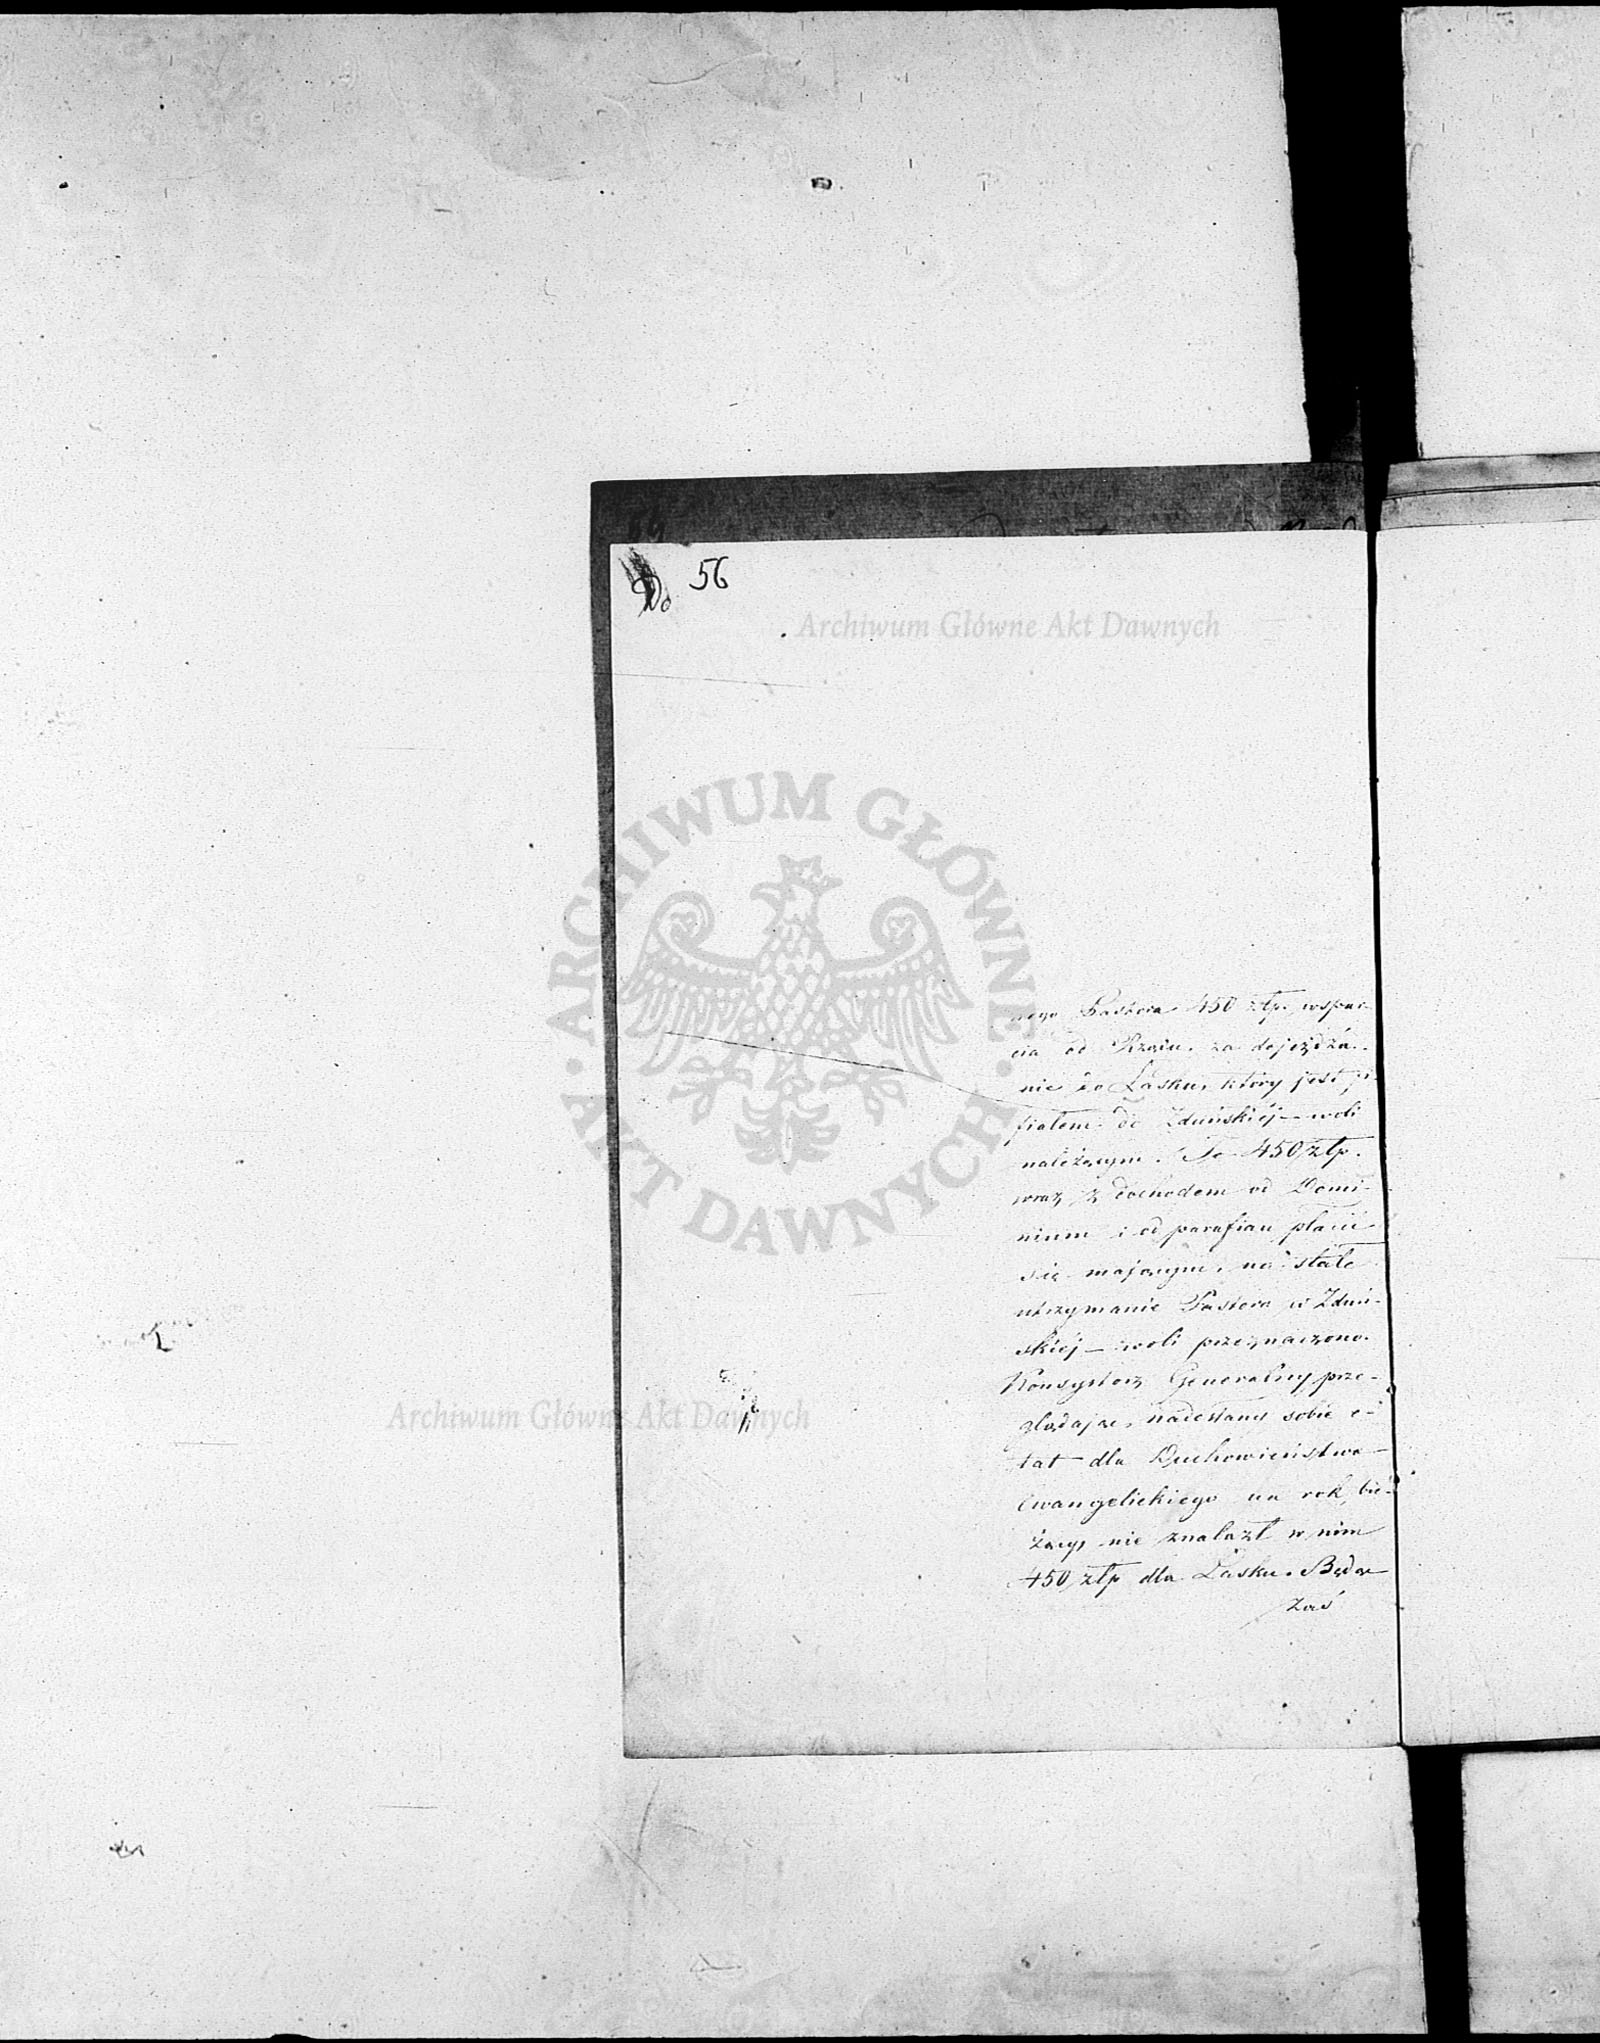 Do 56
Archiwum Główne Akt Dawnych
ARCHIWUM GŁÓWNE
• AKT DAWNYCH •
nego Pastora 450 złp. wspar-
cia od Rządu za dojeżdża-
nie do Łasku, który jest fi-
fialem do Zduńskiéj-woli
należącym. Te 450 złp.
wraz z dochodem od Domi-
nium i od parafian płacić
się mającym, na stałe
utrzymanie Pastora w Zduń-
skiéj-woli przeznaczono.
Konsystorz Generalny prze-
glądając nadesłany sobie e-
tat dla Duchowieństwa
Ewangelickiego na rok bie-
żący, nie znalazł w nim
450 złp dla Łasku. Będąc
zaś
Archiwum Główne Akt Dawnych